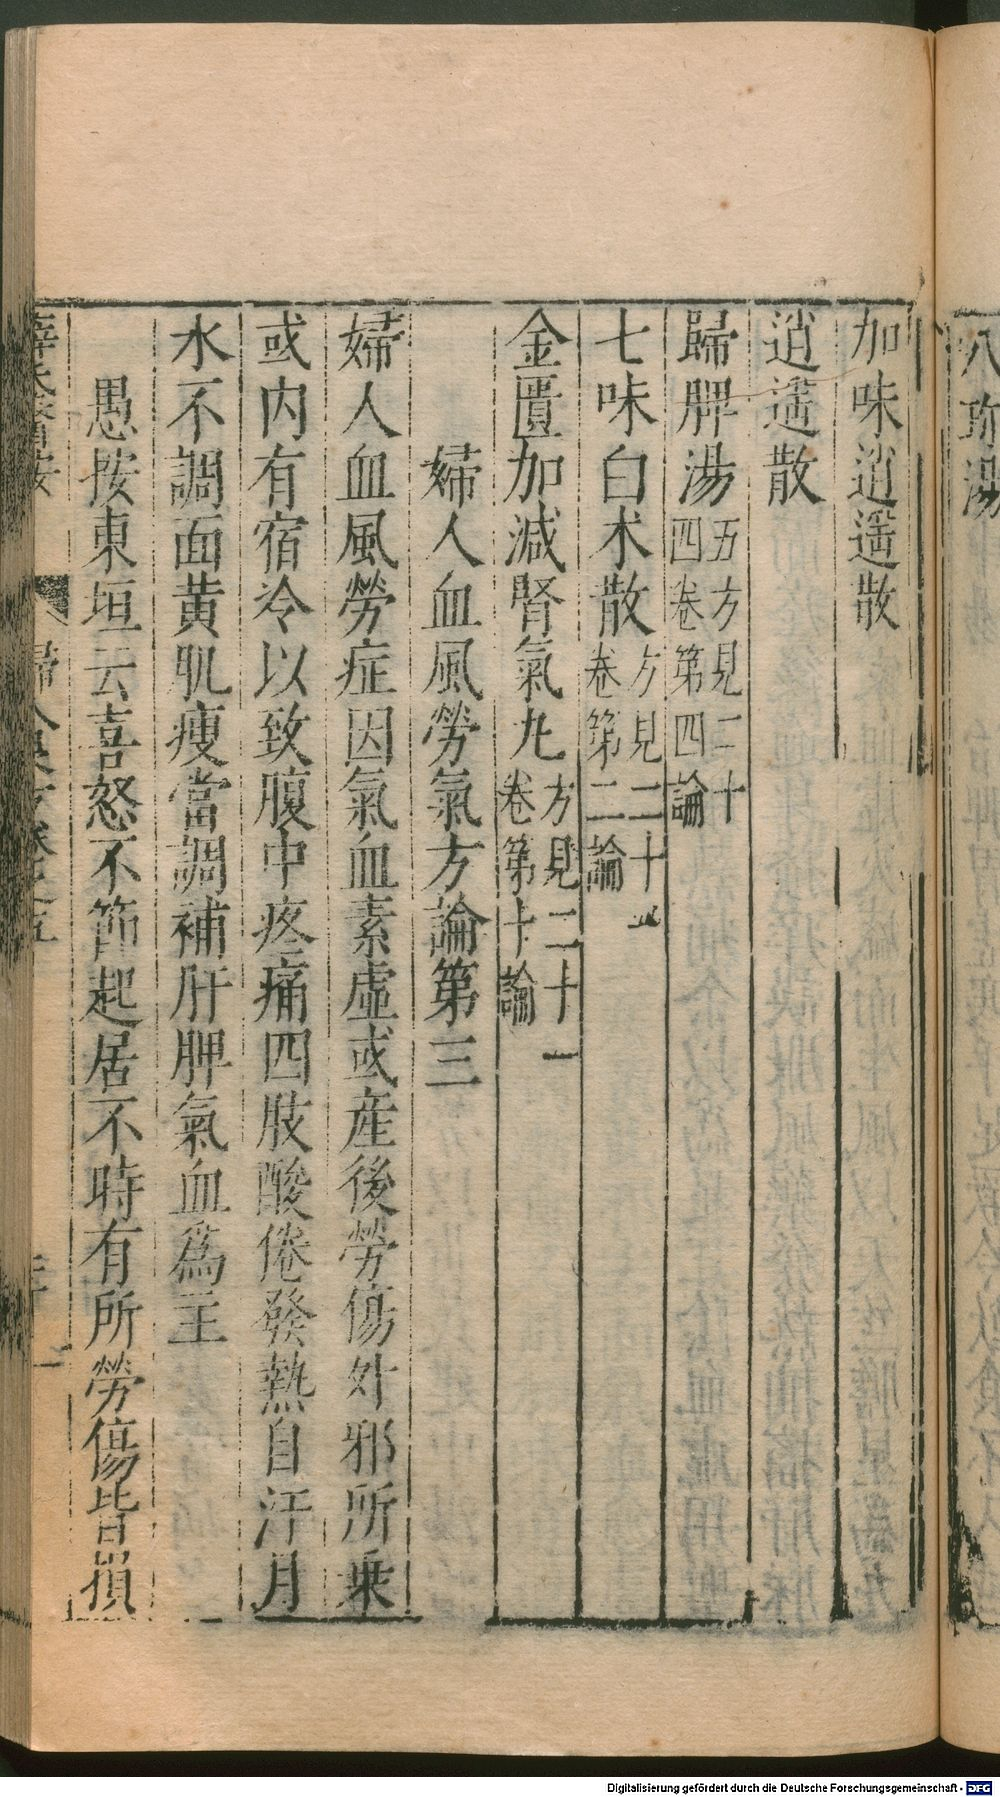 八珎湯
加味逍遥散
逍遥散
歸脾湯五方見二十四卷第四論
七味白术散方見二十四卷第二論
金匱加減腎氣九方見二十一卷第十論
婦人血風勞氣方論第三
婦人血風勞症因氣血素虛或産後勞傷外邪所乗
或内有宿冷以致腹中疼痛四肢酸倦發熱自汗月
水不調面黄肌瘦當調補肝脾氣血爲主
愚按東垣云喜怒不節起居不時有所勞傷皆損
Digitalisierung gefördert durch die Deutsche Forschungsgemeinschaft - DFG